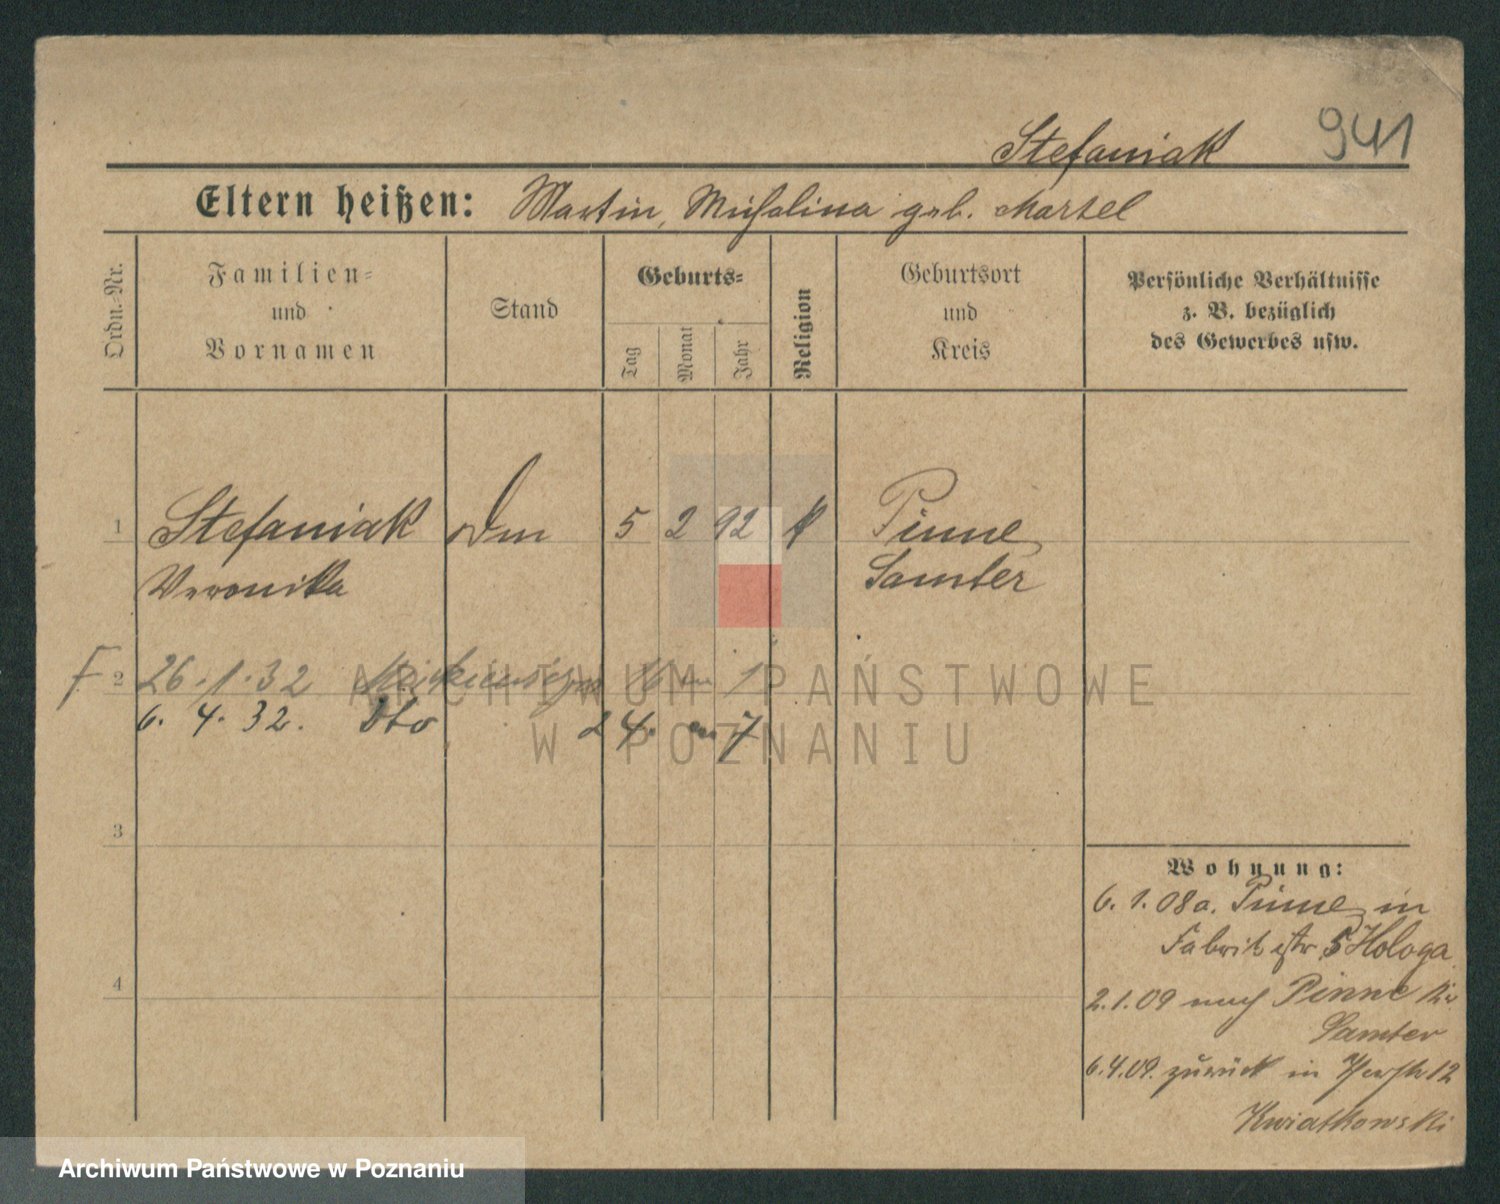 941
Stefaniak
Eltern heißen: Martin, Michalina geb. Martel
Ordn.-Nr.
Familien-
und
Vornamen
Stand
Geburts-
Tag
Monat
Jahr
Religion
Geburtsort
und
Kreis
Persönliche Verhältnisse
z. B. bezüglich
des Gewerbes usw.
1 Stefaniak 5 2 92 k Pinne
Veronika Samter
F 2 26.1.32
6. 4. 32. Dto 24.
3
4
Wohnung:
6. 1. 08 a. Pinne in
Fabrikstr 5 Hologa
2.1.09 nach Pinne Kr
Samter
6.4.09. zurück in 12
Kwiatkowski
ARCHIWUM PAŃSTWOWE
W POZNANIU
Archiwum Państwowe w Poznaniu